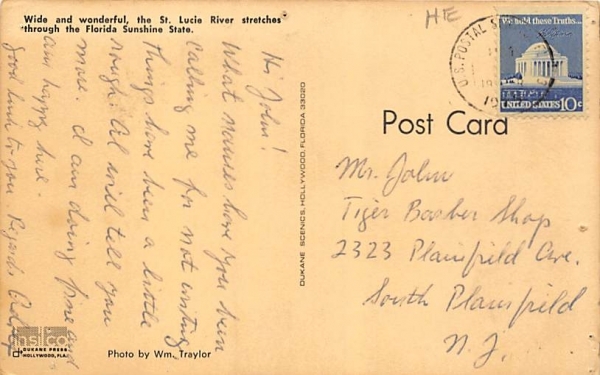 Wide and wonderful, the St. Lucie River stretches
through the Florida Sunshine State.
HE
U.S. POSTAL
We hold these Truths...
UNITED STATES 10c
Post Card
Hi, John!
What names have you been
calling me for not writing
Things have been a little
rough. Al will tell you
more. I am doing fine and
am happy here.
Good luck to you Regards
DUKANE SCENICS, HOLLYWOOD, FLORIDA 33020
Mr. John
Tiger Barber Shop
2323 Plainfield Ave.
South Plainfield
N. J.
DUKANE PRESS
HOLLYWOOD, FLA.
Photo by Wm. Traylor